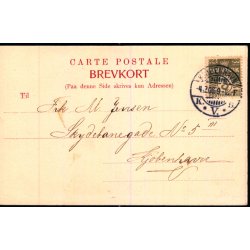 CARTE POSTALE
BREVKORT
(Paa denne Side skrives kun Adressen)
Til
Frk M Jensen
Skydebanegade No 5
Kjøbenhavn
K.
V.